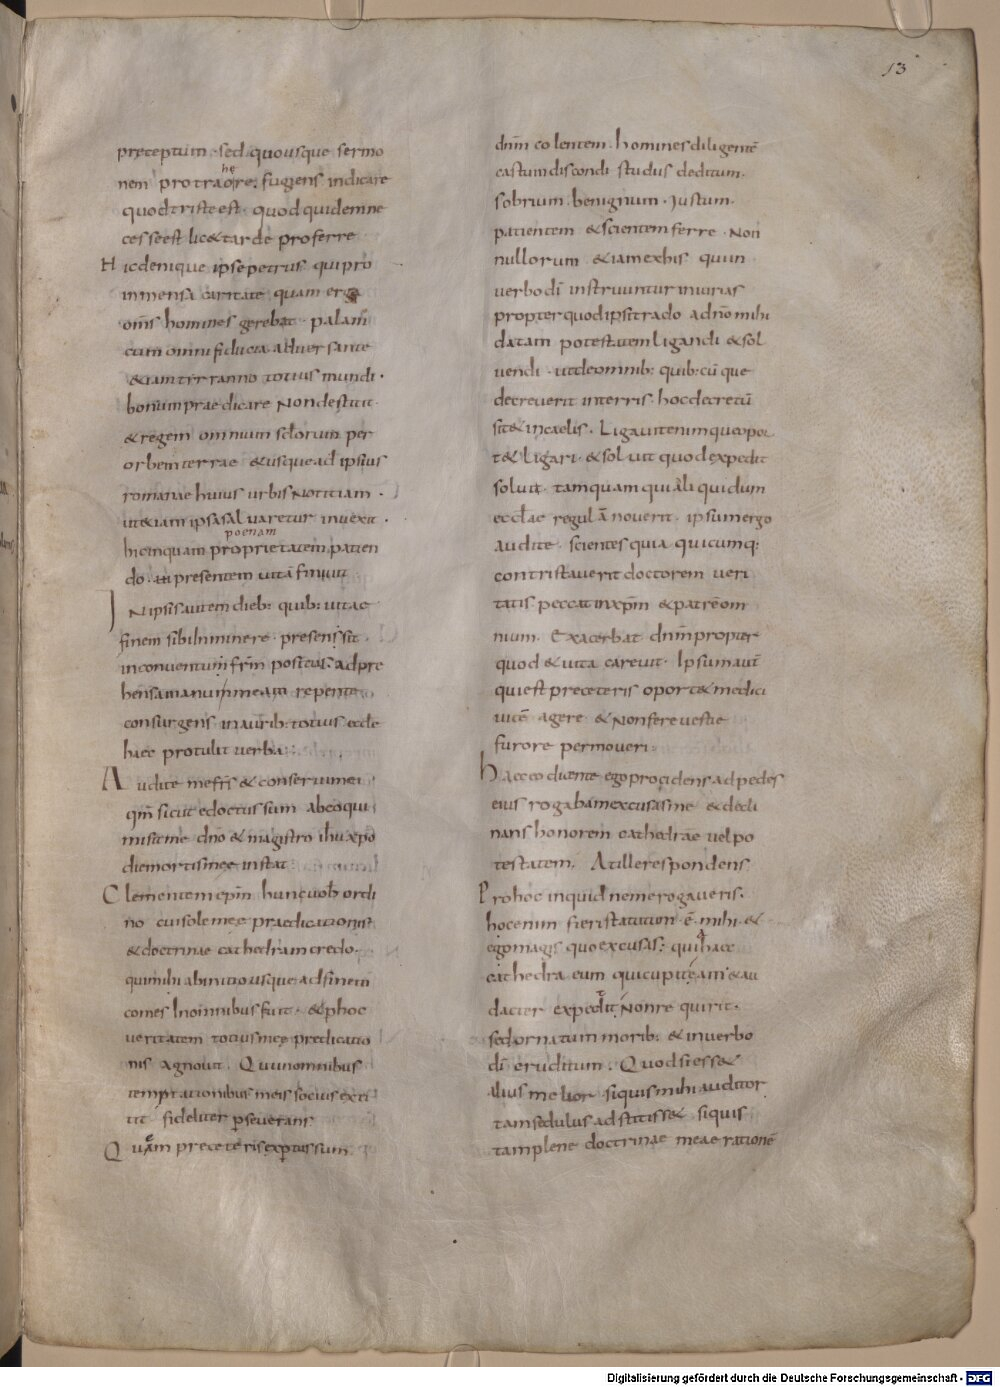 13
preceptum · sed quousque sermo
nem protraore; fugiens indicare
he
quod triste est · quod quidem ne
cesse est lic& tarde proferre
Hic denique ipse petrus qui pro
inmensa caritate quam erga
om̄s homines gerebat · palam
cum omni fiducia adversante
&iam tyranno totius mundi ·
bonum praedicare Non destitit ·
& regem omnium sclorum per
orbem terrae & usque ad ipsius
romanae huius urbis Notitiam ·
ut &iam ipsa salvaretur invexit ·
poenam
hic inquam proprietatem patien
do · in presentem vitā finivit
INipsis autem dieb: quib: vitae
finem sibi inminere · presensit
in conventum frm̄ positus · adpre
hensa manu mea repente
consurgens in aurib: totius eccle
haec protulit verba ·
Audite me frs̄ & conservi mei
qm̄ sicut edoctus sum ab eo qui
misit me dn̄o & magistro ih̄u xp̄o
die mortis meae instat
Clementem ep̄m hunc vob ordi
no cui soli meae praedicationis
& doctrinae cathedram credo ·
qui mihi ab initio usque ad finem
comes In omnibus fuit · & p hoc
veritatem totius meae predicatio
nis agnovit · Qui in omnibus
temptationibus meis socius exti
tit fideliter pseverans
Quem prece teris exptus sum
dnm̄ colentem · homines diligentē
castum discendi studiis deditum ·
sobrium · benignum · Iustum ·
patientem & scientem ferre · Non
nullorum &iam ex his qui in
verbo dī instruuntur iniurias
propter quod ipsi trado a dn̄o mihi
datam potestatem ligandi & sol
vendi · ut de omnib: quib:cū que
decreverit in terris · hoc decretū
sit & in caelis · Ligavit enim que opor
t& ligari · & solvit quod expedit
solvi · tamquam qui ali quidum
eccl̄ae regulā noverit · ipsum ergo
audite · scientes quia quicumq:
contristaverit doctorem veri
tatis peccat in xp̄m & patrē om
nium · Exacerbat dn̄m propter
quod & vita carevit · Ipsum aut̄
qui est preceteris oport& medici
vicē agere & Non fere vestie
furore permoveri ·
Haec eo dicente ego procidens ad pedes
eius rogabam excusas me & decli
nans honorem cathedrae vel po
testatem · At ille respondens
Pro hoc inquid neme rogaveris ·
hoc enim fieri statutum ē · mihi · &
ego magis quo excusas: qui haec
cathedra eum qui cupit eam & au
dacter expedit Non requirit ·
sed ornatum morib: & in verbo
dī eruditum · Quod si ess&
alius melior siquis mihi auditor
tam sedulus adstitiss& siquis
tam plene doctrinae meae rationē
Digitalisierung gefördert durch die Deutsche Forschungsgemeinschaft - DFG